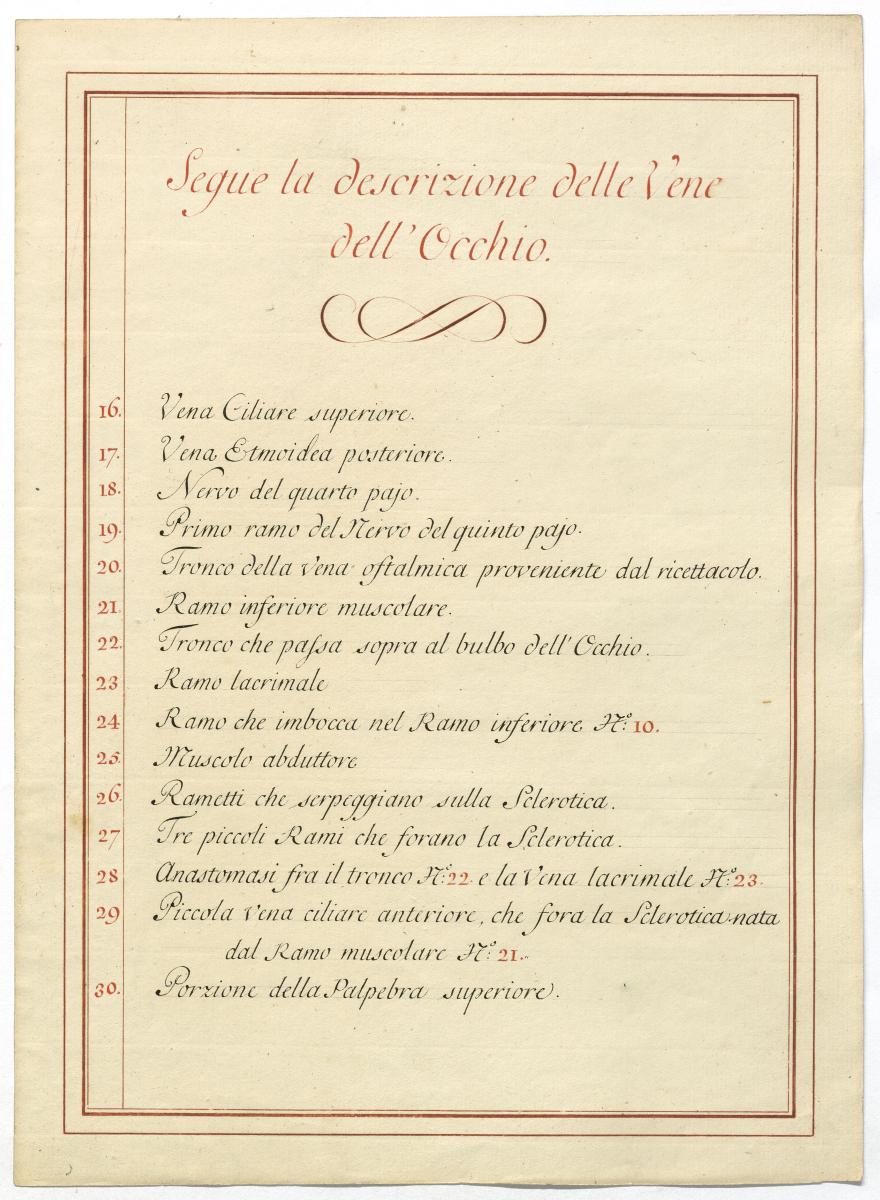 Segue la descrizione delle Vene
dell'Occhio.
16. Vena Ciliare superiore.
17. Vena Etmoidea posteriore.
18. Nervo del quarto pajo.
19. Primo ramo del Nervo del quinto pajo.
20. Tronco della Vena oftalmica proveniente dal ricettacolo.
21. Ramo inferiore muscolare.
22. Tronco che paſsa sopra al bulbo dell'Occhio.
23 Ramo lacrimale
24 Ramo che imbocca nel Ramo inferiore N.º 10.
25. Muscolo abduttore
26. Rametti che serpeggiano sulla Sclerotica.
27 Tre piccoli Rami che forano la Sclerotica.
28 Anastomasi fra il tronco N.º 22. e la Vena lacrimale N.º 23.
29 Piccola Vena ciliare anteriore, che fora la Sclerotica nata
dal Ramo muscolare N.º 21.
30. Porzione della Palpebra superiore.